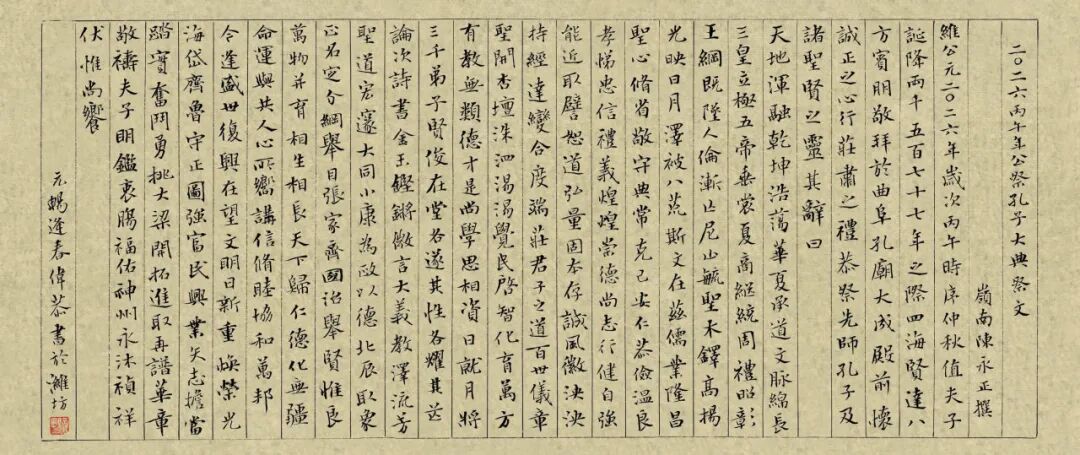 二〇二六丙午年公祭孔子大典祭文
嶺南陳永正撰
維公元二〇二六年歲次丙午時序仲秋值夫子
誕降兩千五百七十七年之際四海賢達八
方賓朋敬拜於曲阜孔廟大成殿前懷
誠正之心行莊肅之禮恭祭先師孔子及
諸聖賢之靈其辭曰
天地渾融乾坤浩蕩華夏承道文脈綿長
三皇立極五帝垂裳夏商繼統周禮昭彰
王綱既墮人倫漸亡尼山毓聖木鐸高揚
光映日月澤被八荒斯文在茲儒業隆昌
聖心脩省敬守典常克己安仁恭儉溫良
孝悌忠信禮義煌煌崇德尚志行健自強
能近取譬恕道弘量固本存誠風徽泱泱
持經達變合度端莊君子之道百世儀章
聖開杏壇洙泗湯湯覺民啓智化育萬方
有教無類德才是尚學思相資日就月將
三千弟子賢俊在堂各遂其性各耀其芒
論次詩書金玉鏗鏘微言大義教澤流芳
聖道宏邃大同小康為政以德北辰取象
正名定分綱舉目張家齊國治舉賢惟良
萬物并育相生相長天下歸仁德化無疆
命運與共人心所嚮講信脩睦協和萬邦
今逢盛世復興在望文明日新重煥榮光
海岱齊魯守正圖強富民興業矢志擔當
踏實奮鬥勇挑大梁開拓進取再譜華章
敬禱夫子明鑑衷腸福佑神州永沐禎祥
伏惟尚饗
元暢逢春偉恭書於濰坊